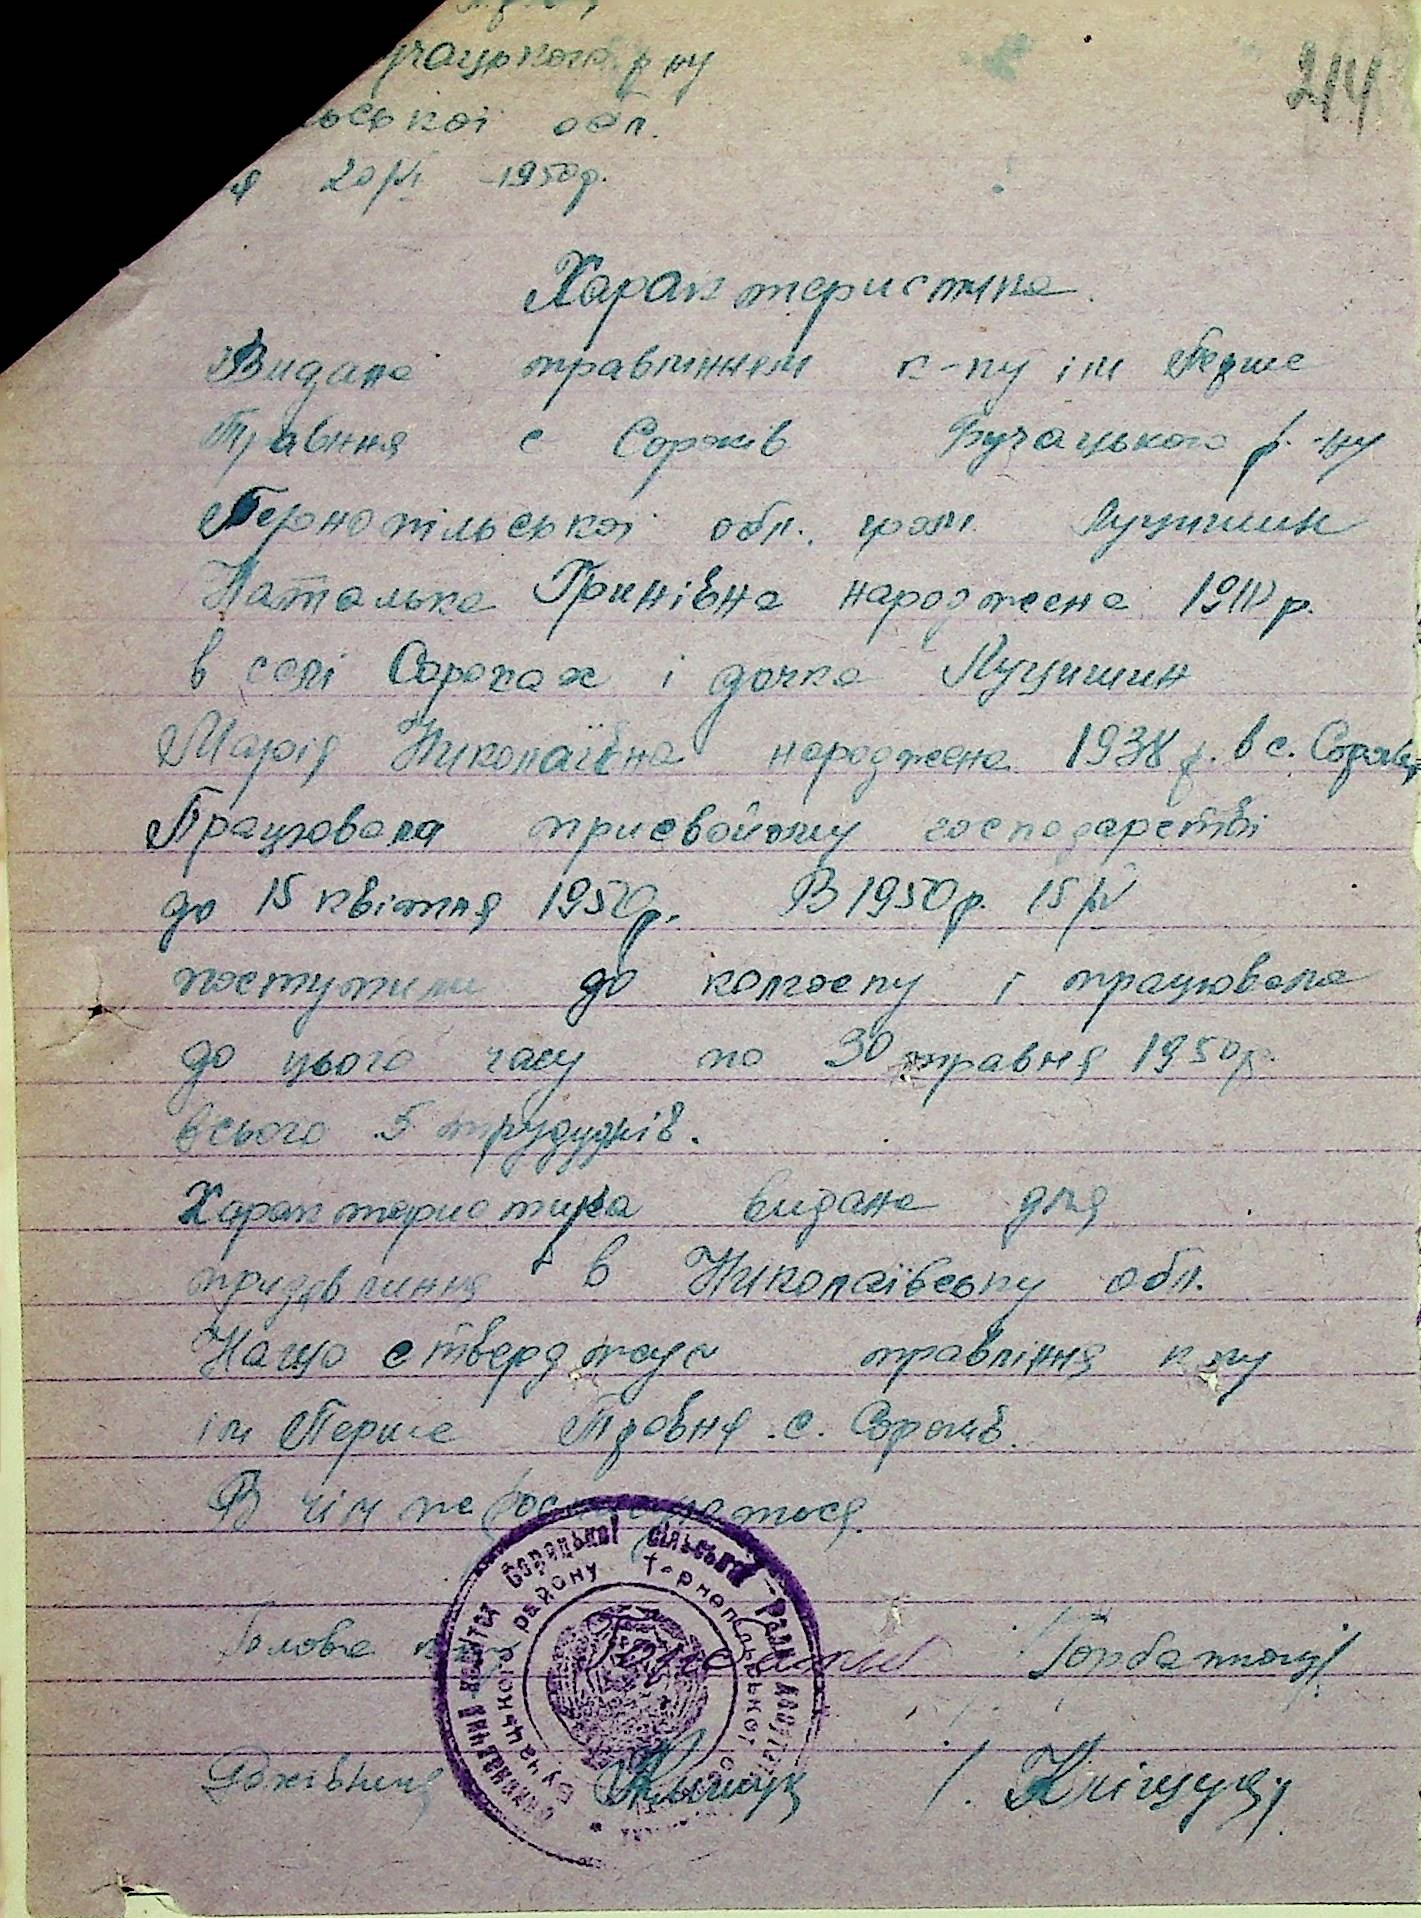 учацького р ну
ської обл.
20/VI 1950р.
244
Характеристика.
Видана правлінням к-пу ім Перше
Травня с Сороків Бучацького р.-ну
Тернопільської обл. гром. Луцишин
Наталька Гринівна народжена 1910р.
в селі Сороках і дочка Луцишин
Марія Николаївна народжена 1938 р. в с. Сороків
Працювала присвойому господарстві
до 15 квітня 1950р. В 1950р. 15/IV
поступили до колгоспу і працювала
до цього часу по 30 травня 1950р.
всього 5 трудоднів.
Характеристика видана для
придявлиння в Николаївську обл.
На що стверджує правління к пу
ім Перше Тровня с. Сороків.
В чім і росписуеться.
Голова
Горбатюк
/Горбатюк/
Климук
/. Кліщук/
Виконавчий комітет Сороцької сільської Ради депутатів
Бучацького району Тернопільської області